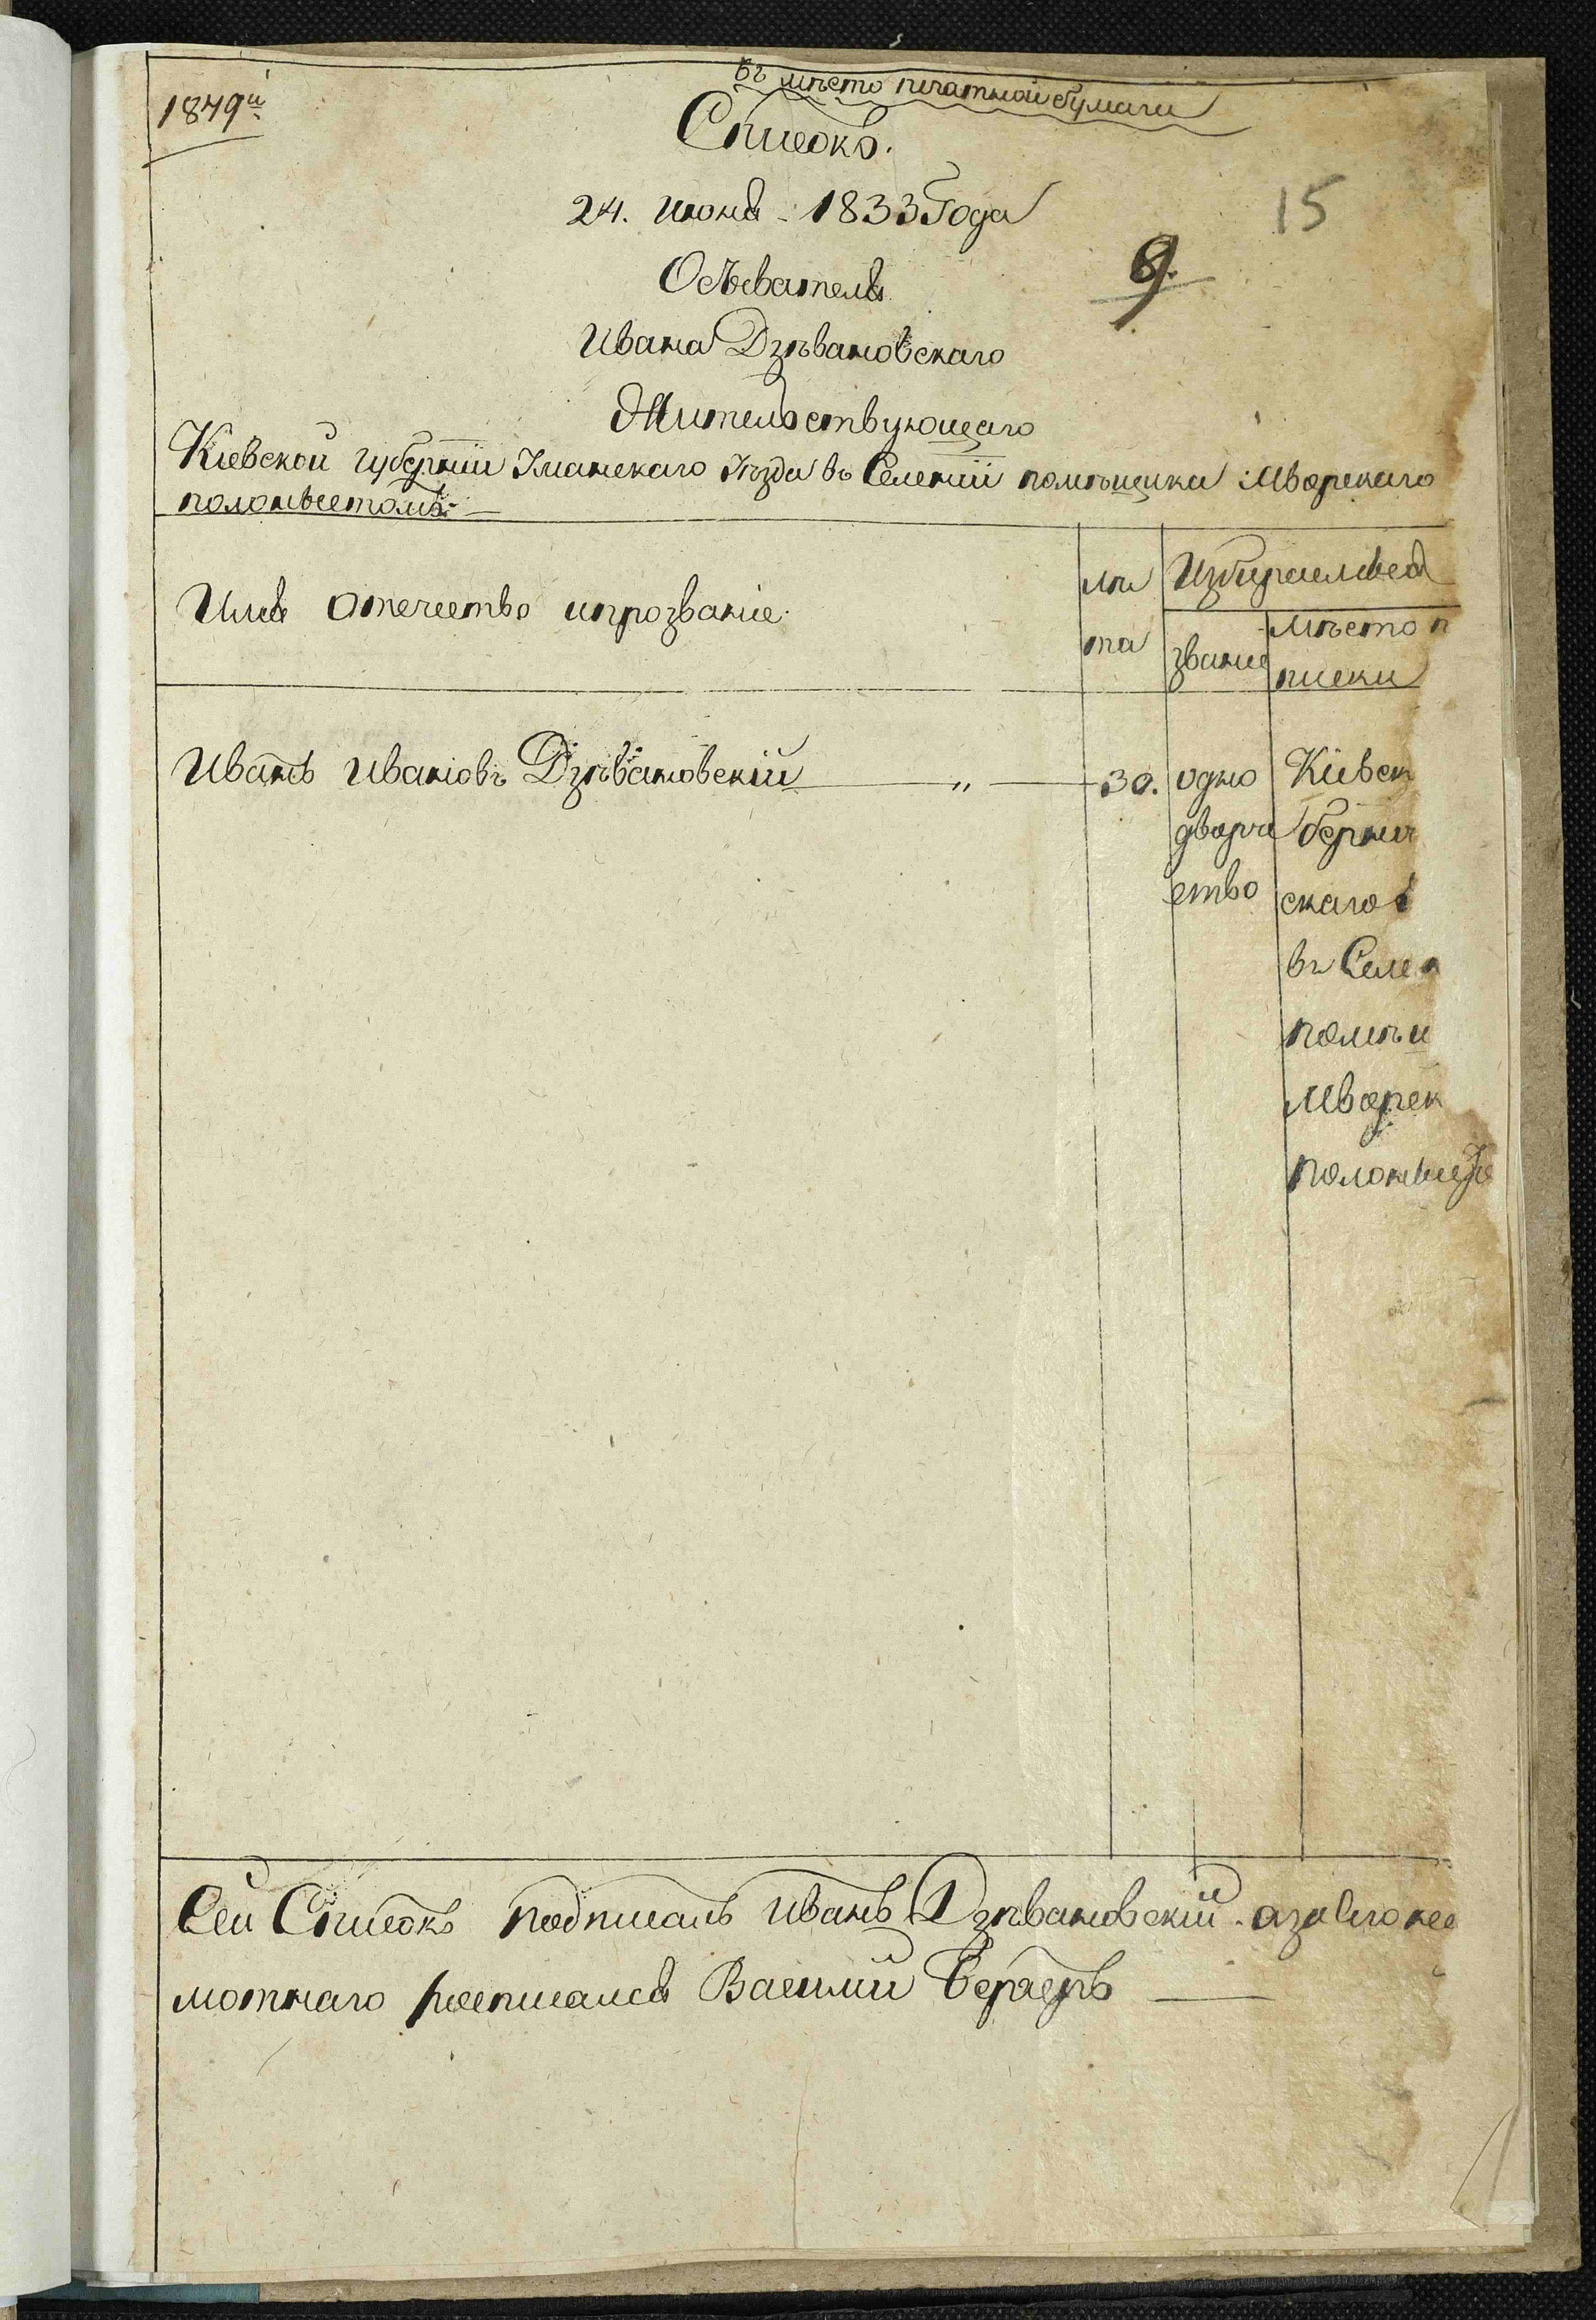 въ мѣсто печатной бумаги
1849й
Списокъ.
24. Июня 1833 Года
15
9.
Обѣвателя
Ивана Дзѣвановскаго
Жительствующаго
Кіевской губерніи Уманскаго Уѣзда въ Селеніи помѣщика Мворскаго
полонистомъ
Имя Отечество ипрозваніе
лѣ
та
Избираемое
званіе
мѣсто п
писки
Иванъ Ивановъ Дзѣвановскій „ 30.
одно
дворче
ство
Кіевск
берніи
скаго
въ Селен
помѣщ
Мворск
Сей Списокъ подписалъ Иванъ Дзѣвановскій азаего не
мотнаго росписался Василій Бернеръ